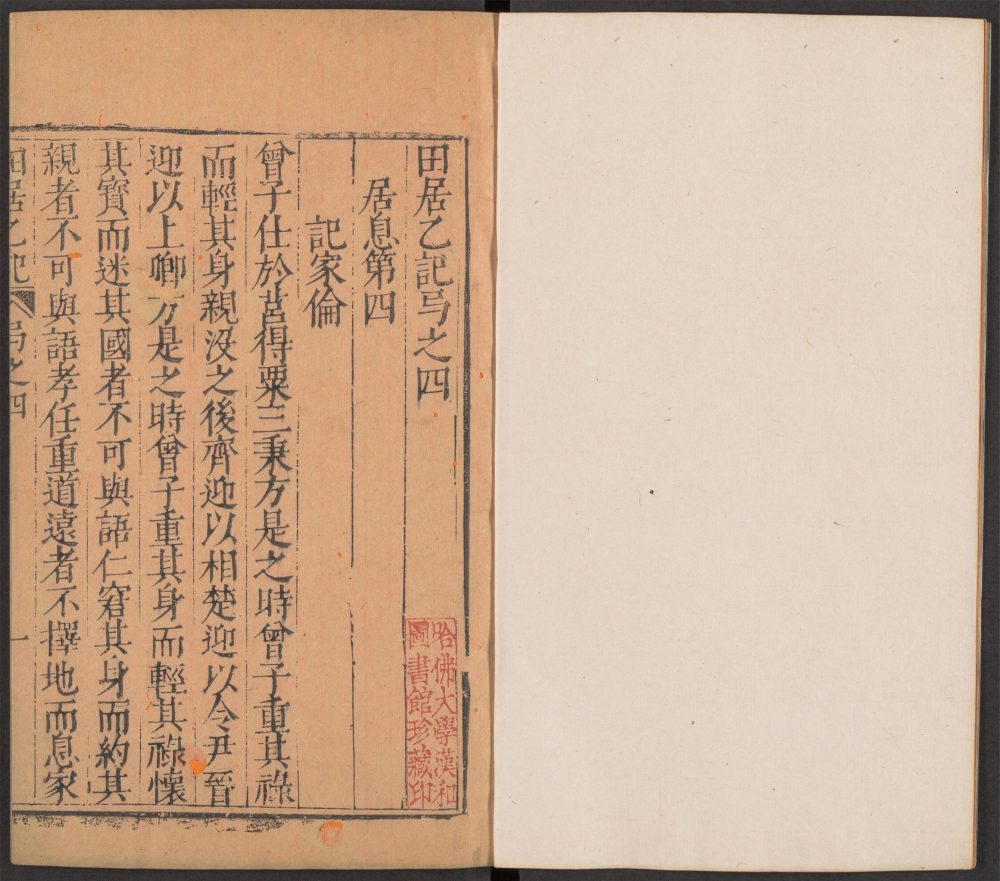 田居乙記弓之四
居息第四
記家倫
曾子仕於莒得粟三秉方是之時曾子重其祿
而輕其身親沒之後齊迎以相楚迎以令尹晉
迎以上卿方是之時曾子重其身而輕其祿懷
其寶而迷其國者不可與語仁窘其身而約其
親者不可與語孝任重道遠者不擇地而息家
田居乙記 弓之四 一
哈佛大學漢和
圖書館珍藏印